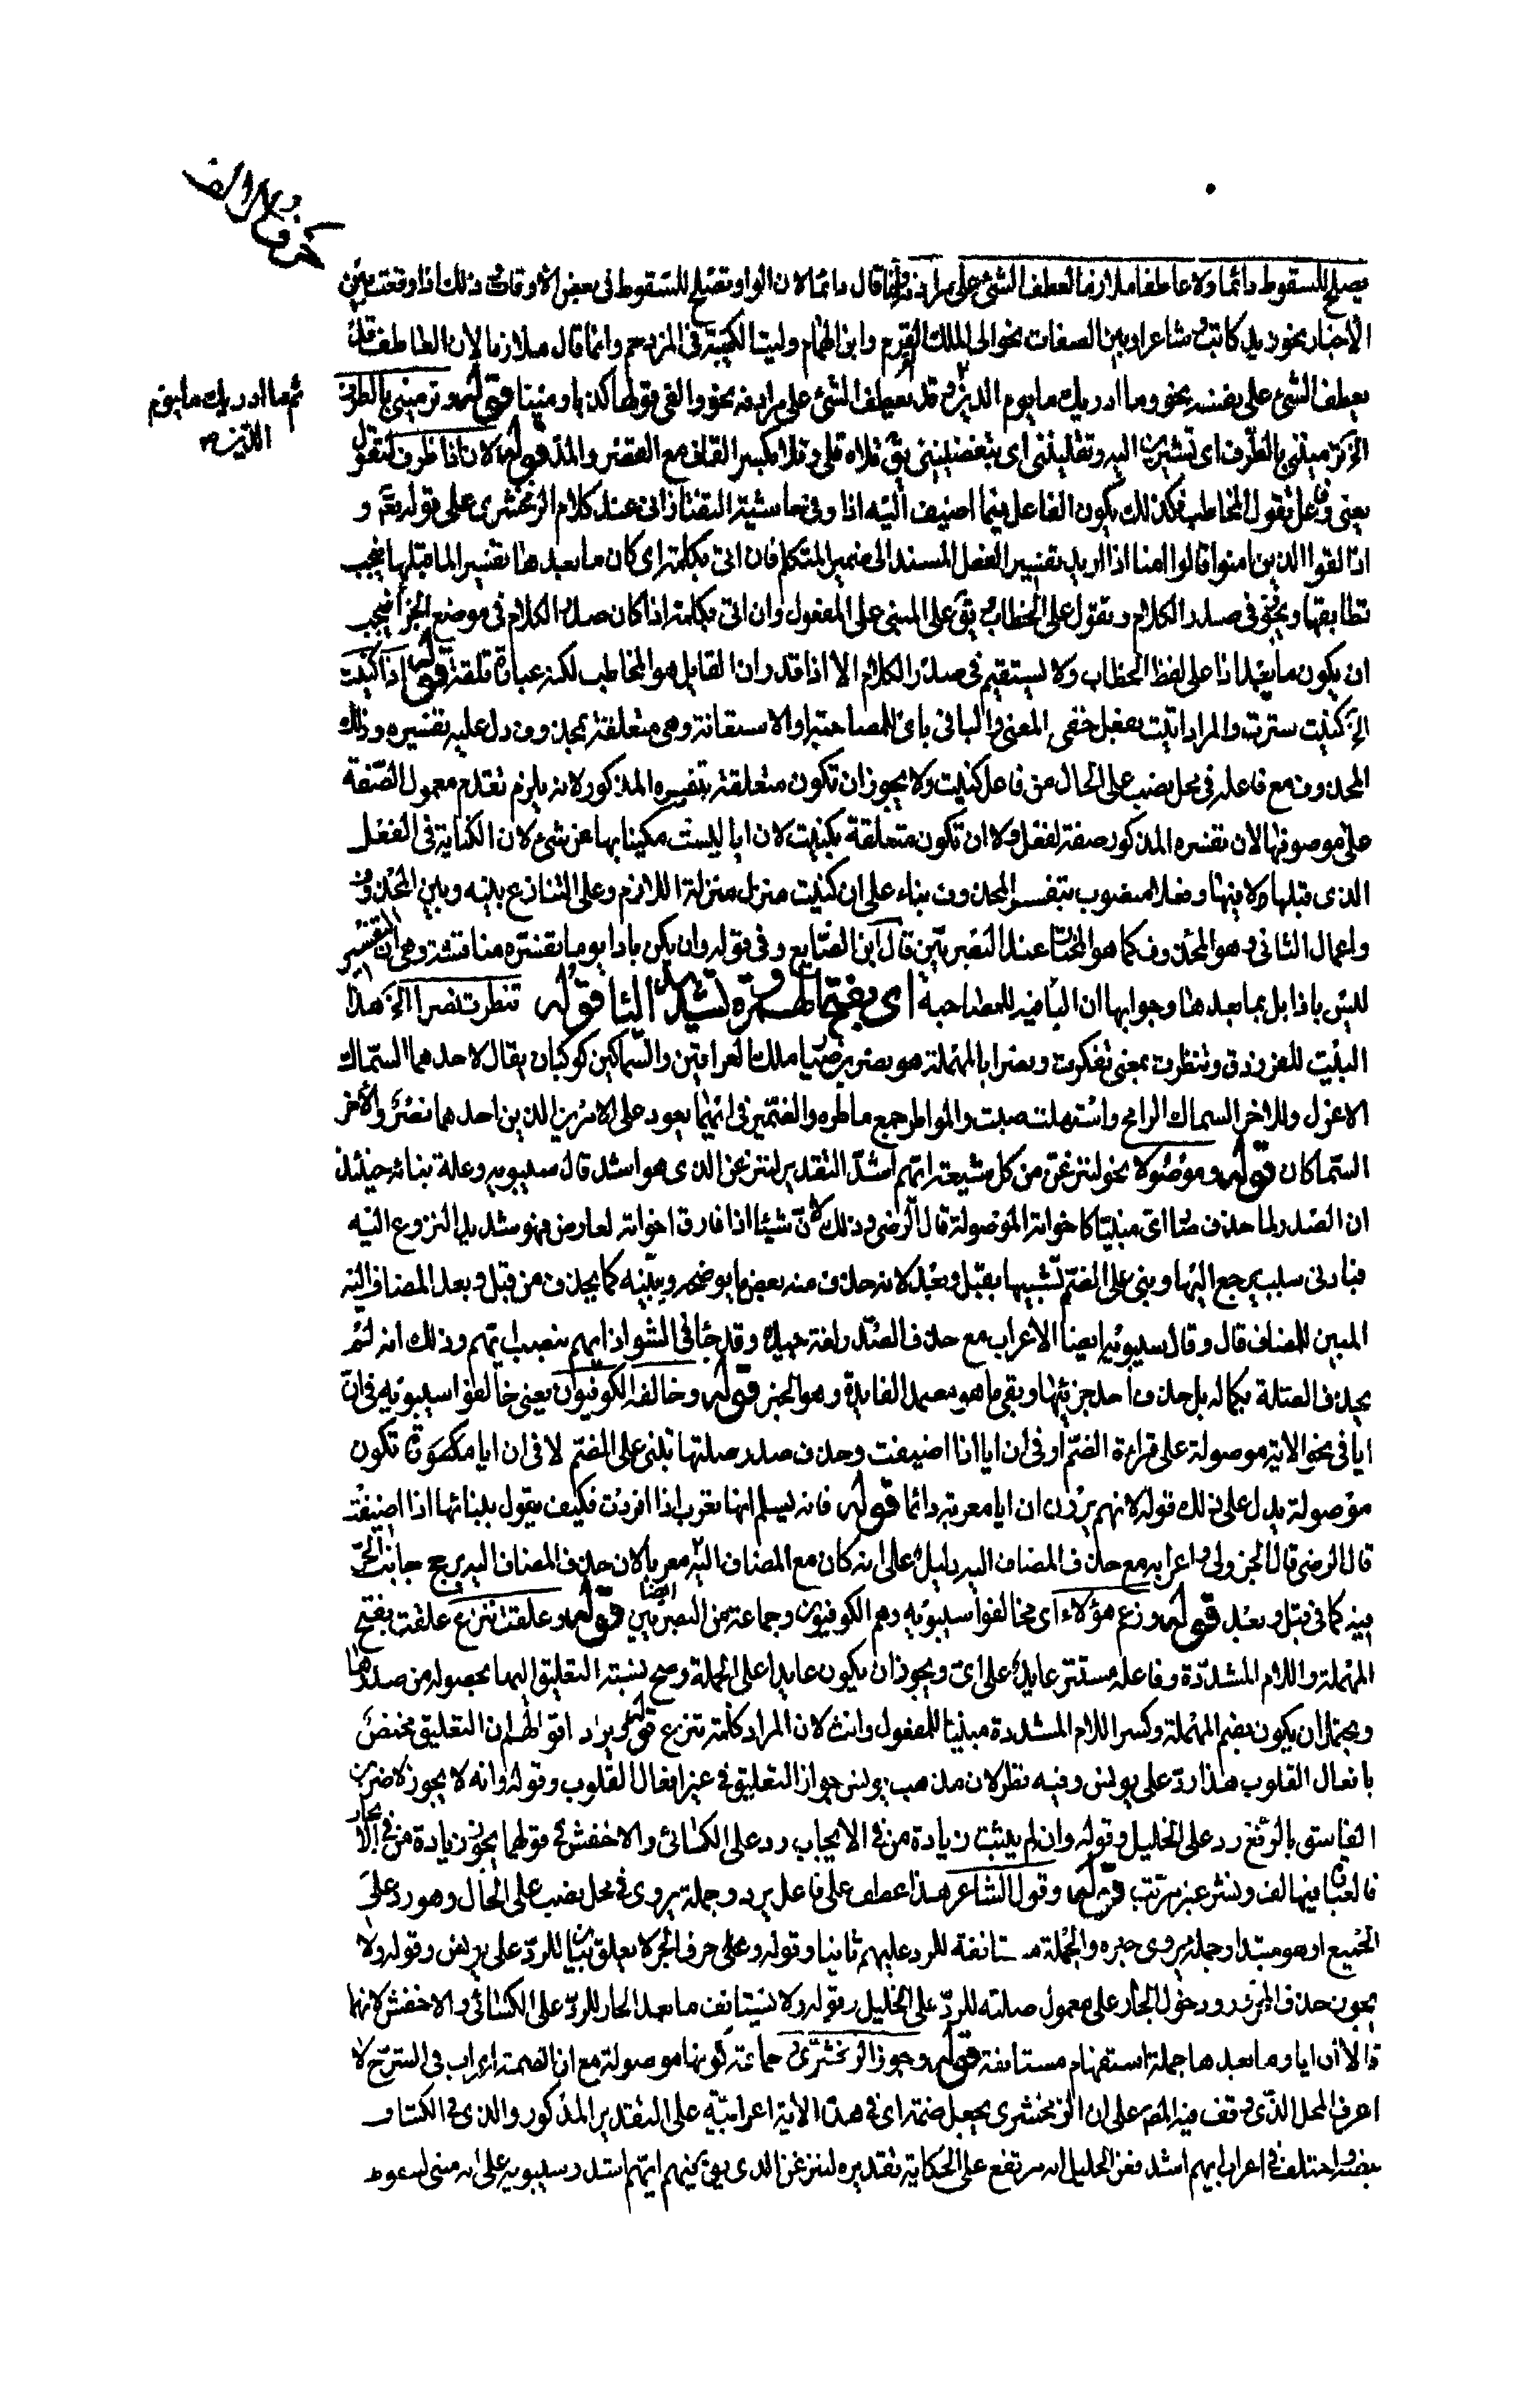 حرف وعلى الف
يصلح للسقوط دائما ولا عاطفا ملازما لعطف الشئ على مرادفه وانما قال دائما لان الواو تصلح للسقوط فى بعض الاوقات وذلك اذا وقعت بين
الاخبار نحو زيد كاتب وشاعر او بين الصفات نحو الى الملك القرم وابن الهمام وليث الكتيبة فى المزدحم وانما قال ملازما لان العاطف قد
يعطف الشئ على نفسه نحو وما ادريك ما يوم الدين وقد يعطف الشئ على مرادفه نحو والفى قولها كذبا ومينا قوله وترمينى بالطرف
ثم ما ادريك ما يوم
الدين صح
الخ ترميننى بالطرف اى تشيرين اليه وتقليننى اى تبغضيننى يق قلاه قلى وقلا بكسر القاف مع القصر والمد قوله لان اذا ظرف لتقول
يعنى وفاعل تقول المخاطب فكذلك يكون الفاعل فيما اضيف اليه اذا وفى حاشية التفتازانى عند كلام الزمخشرى على قوله تعه و
اذا لقوا الذين امنوا قالوا امنا اذا اريد تفسير الفعل المسند الى ضمير المتكلم فان اتى بكلمة اى كان ما بعدها تفسيرا لما قبلها فيجب
تطابقهما ويجوز فى صدر الكلام وتقول على الخطاب ويق على المبنى على المفعول وان اتى بكلمة اذا كان صدر الكلام فى موضع الجزا فيجب
ان يكون ما بعد اذا على لفظ الخطاب ولا يستقيم فى صدر الكلام الا اذا قدر ان القايل هو المخاطب لكنه عبارة قلقة قوله اذا كنيت
الخ كنيت سترت والمراد اتيت بفعل خفى المعنى والبا فى باى للمصاحبة او الاستعانة وهى متعلقة بمحذوف دل عليه تفسيره وذلك
المحذوف مع فاعله فى محل نصب على الحال من فاعل كنيت ولا يجوز ان تكون متعلقة بتفسيره المذكور لانه يلزم تقدم معمول الصفة
على موصوفها لان تفسره المذكور صفة لفعل ولا ان تكون متعلقة بكنيت لان ايا ليست مكنيا بها عن شئ لان الكناية فى الفعل
الذى قبلها لا فيها وفعلا منصوب بتفسر المحذوف بناء على ان كنيت منزل منزلة اللازم وعلى التنازع بينه وبين المحذوف
واعمال الثانى وهو المحذوف كما هو المختار عند البصريين قال ابن الصايع وفى قوله وان يكن باذا يوما تفسره مناقشة وهى ان التفسير
ليس باذا بل بما بعدها وجوابها ان البا فيه للمصاحبة اى بفتح الهمزة وتشديد اليا قوله تنظرت نصرا الخ هذا
البيت للفرزدق وتنظرت بمعنى تفكرت ونصرا بالمهملة هو نصر بن ملك العراقين والسماكين كوكبان يقال لاحدهما السماك
الاعزل وللاخر السماك الرامح واستهلت صبت والمواطر جمع ماطره والضمير فى ايهما يعود على الامرين الذين احدهما نصر والاخر
السماكان قوله وموصولا نحو لننزعن من كل شيعة ايهم اشد التقدير لننزعن الذى هو اشد قال سيبويه وعلة بنائه حينئذ
ان الصدر لما حذف صار اى مبنيا كاخواته الموصولة قال الرضى وذلك لان شيئا اذا فارق اخواته لعارض فهو شديد النزوع اليه
فبادنى سبب يرجع اليها وبنى على الضم تشبيها بقبل وبعد لانه حذف منه بعض ما يوضحه ويبينه كما يحذف من قبل وبعد المضاف اليه
المبين للمضاف قال وقال سيبويه ايضا الاعراب مع حذف الصدر لغة جيدة وقد جا فى الشواذ ايهم بنصب ايهم وذلك انه لم
يحذف الصلة بكماله بل حذف احد جزئيها وبقى ما هو معتمد الفايدة وهو الخبر قوله وخالفه الكوفيون يعنى خالفوا سيبويه فى ان
ايا فى نحو الاية موصولة على قراءة الضم او فى ان ايا اذا اضيفت وحذف صدر صلتها تبنى على الضم لا فى ان ايا تكون
موصولة يدل على ذلك قوله لانهم يرون ان ايا معربة دائما قوله فانه يسلم انها تعرب اذا افردت فكيف يقول ببنائها اذا اضيفت
قال الرضى قال الجزولى واعرابه مع حذف المضاف اليه دليل على انه كان مع المضاف اليه معربا لان حذف المضاف اليه يرجح جانب البناء
فيه كما فى قبل وبعد قوله وزعم هؤلاء اى مخالفوا سيبويه وهم الكوفيون وجماعة من البصريين ايضا قوله وعلقت ننزع علقت بفتح
المهملة واللام المشددة وفاعله مستتر عايد على اى ويجوز ان يكون عايدا على الجملة وصح نسبة التعليق اليها لحصوله من صدرها
ويحتمل ان يكون بضم المهملة وكسر اللام المشددة مبنيا للمفعول وانث لان المراد كلمة ننزع قوله ويرد اقوالهم ان التعليق مختص
بافعال القلوب هذا رد على يونس وفيه نظر لان مذهب يونس جواز التعليق فى غير افعال القلوب وقوله وانه لا يجوز لاضربن
الفاسق بالرفع رد على الخليل وقوله وان لم يثبت زيادة من فى الايجاب رد على الكسائى والاخفش فى قولهما يجوز زيادة من فى الايجاب
فالعبارة فيها لف ونشر غير مرتب قوله وقول الشاعر هذا عطف على فاعل يرد وجملة يروى فى محل نصب على الحال وهو رد على
الجميع او هو مبتدا وجملة يروى خبره والجملة مستانفة للرد عليهم ثانيا وقوله وعلى حرف الجر لا يعلق بيان للرد على يونس وقوله ولا
يجوز حذف المجرور ودخول الجار على معمول صلته للرد على الخليل وقوله ولا يستانف ما بعد الجار للرد على الكسائى والاخفش لانهما
قالا ان ايا وما بعدها جملة استفهام مستانفة قوله وجوز الزمخشرى وجماعة كونها موصولة مع ان الضمة اعراب فى الشرح لا
اعرف المحل الذى وقف فيه المص على ان الزمخشرى يجعل ضمة اى فى هذه الاية اعرابية على التقدير المذكور والذى فى الكشاف
نصه واختلف فى اعراب ايهم اشد فعن الخليل انه مرتفع على الحكاية تقديره لننزعن الذى يق فيهم ايهم اشد وسيبويه على انه مبنى لسقوط